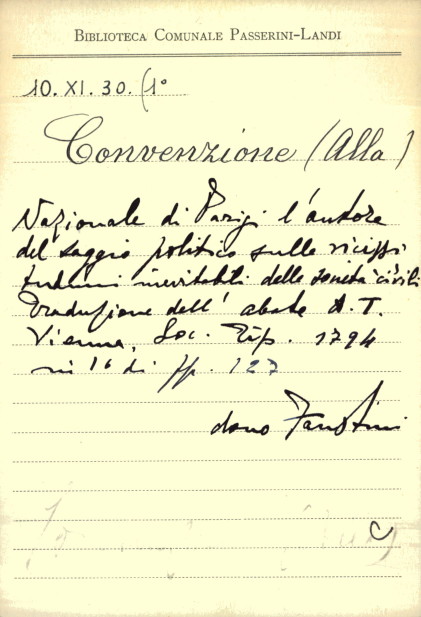 BIBLIOTECA COMUNALE PASSERINI-LANDI
10. XI. 30. (1°
Convenzione (Alla)
Nazionale di Parigi l'autore
del saggio politico sulle vicissi
tudini inevitabili delle società civili
Traduzione dell' abate A. T.
Vienna, Soc. Tip. 1794
in 16 di pp. 127
dono Faustini
C